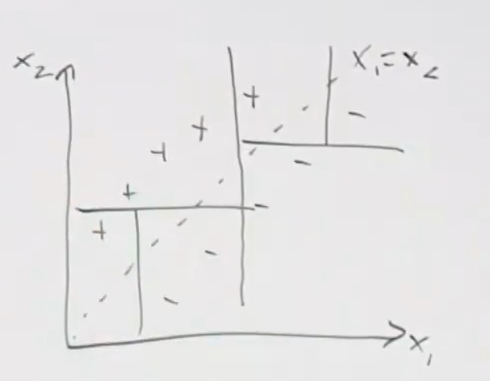 x₂
x₁=x₂
+
-
+
+
-
+
-
+
-
-
x₁